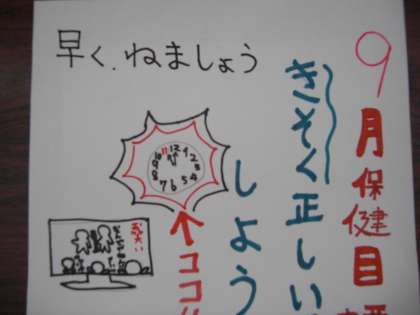 9月保健目標
きそく正しい
しよう
早く、ねましょう
11 12 1 2 3 4 5 6 7 8 9
お笑い
ココ!!